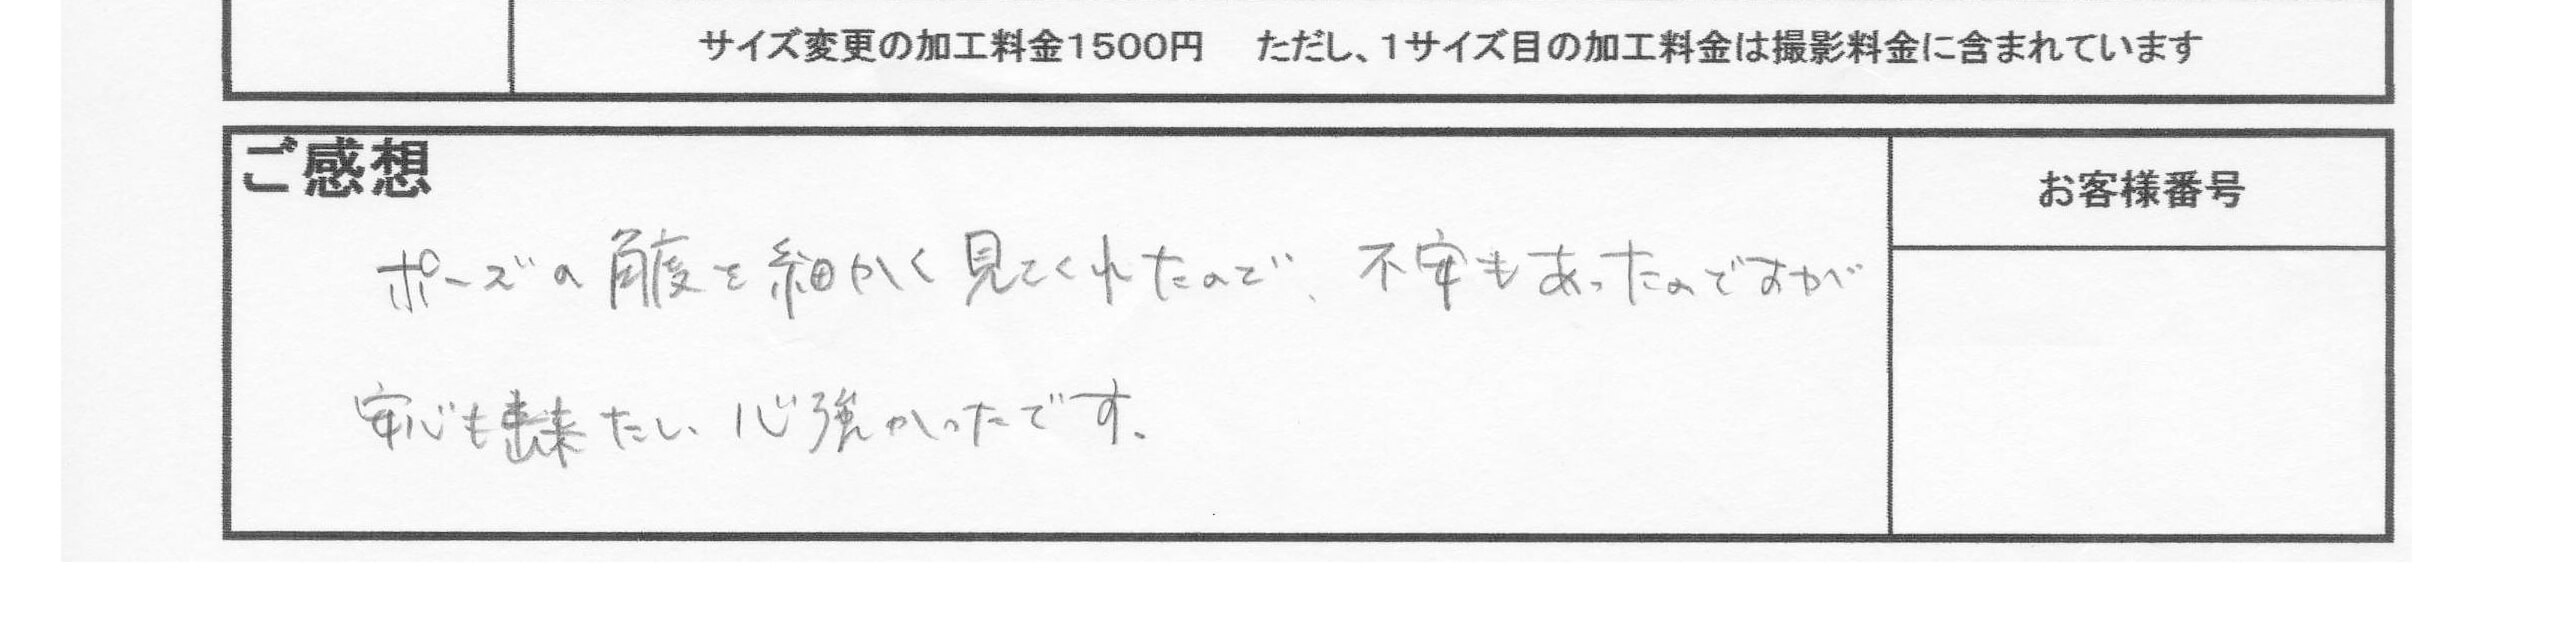 サイズ変更の加工料金1500円　ただし、1サイズ目の加工料金は撮影料金に含まれています
ご感想
お客様番号
ポーズの角度を細かく見てくれたので、不安もあったのですが
安心も出来たし、心強かったです。